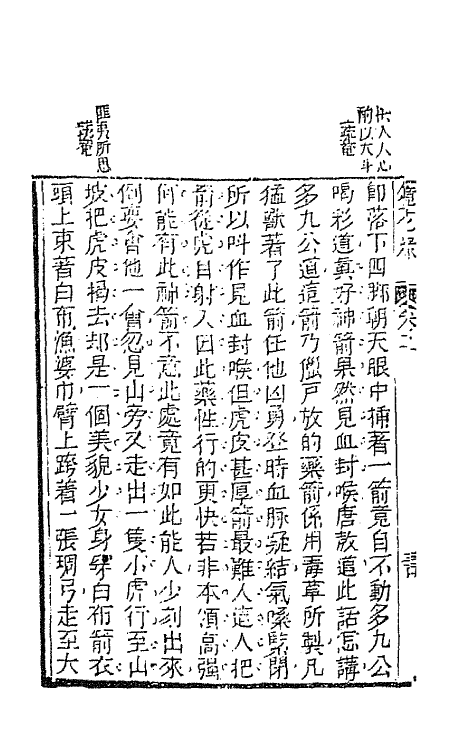 鏡花緣
卷二
卽落下四腳朝天眼中插著一箭竟自不動多九公
喝彩道眞好神箭果然見血封喉唐敖道此話怎講
多九公道這箭乃獵戶放的藥箭係用毒草所製凡
猛獸著了此箭任他凶勇登時血脉凝結氣嗓緊閉
所以叫作見血封喉但虎皮甚厚箭最難入這人把
箭從虎目射入因此藥性行的更快若非本領高強
何能有此神箭不意此處竟有如此能人少刻出來
倒要會他一會忽見山旁又走出一隻小虎行至山
坡把虎皮揭去却是一個美貌少女身穿白布箭衣
頭上束著白布漁婆巾臂上跨著一張琱弓走至大
匪夷所思